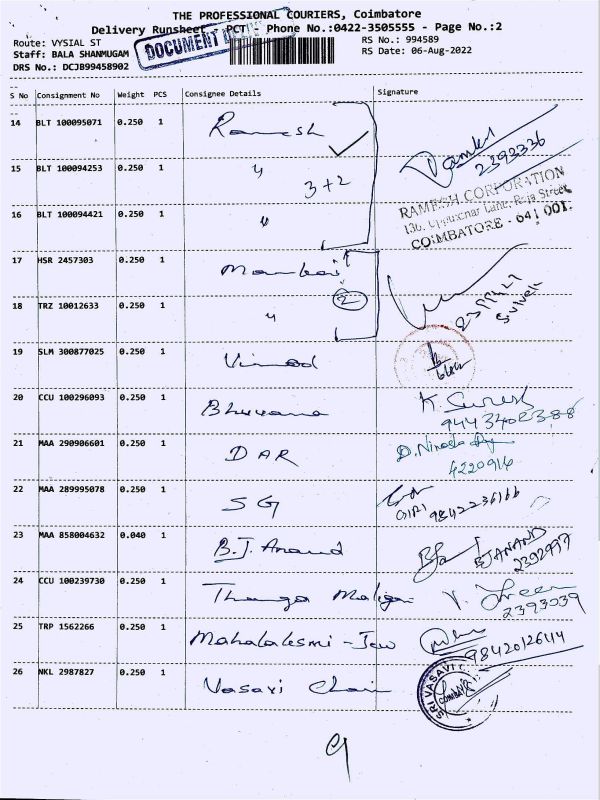 THE PROFESSIONAL COURIERS, Coimbatore
Delivery Runsheet PCTI Phone No.:0422-3505555 - Page No.:2
Route: VYSIAL ST RS No.: 994589
Staff: BALA SHANMUGAM RS Date: 06-Aug-2022
DRS No.: DCJB99458902
DOCUMENT
S No Consignment No Weight PCS Consignee Details Signature
14 BLT 100095071 0.250 1 Ramesh
2393336
15 BLT 100094253 0.250 1 "
3+2
RAMESH CORPORATION
136, Uppukinar Lane, Raja Street,
COIMBATORE - 641 001.
16 BLT 100094421 0.250 1 "
17 HSR 2457303 0.250 1
2
18 TRZ 10012633 0.250 1 "
19 SLM 300877025 0.250 1 Vinood
20 CCU 100296093 0.250 1 Bhuvana K. Suresh
9443402388
21 MAA 290906601 0.250 1 DAR D. Nirosha
4220914
22 MAA 289995078 0.250 1 SG
GIRI 9842236166
23 MAA 858004632 0.040 1 B.J. Anand BJANAND
2392997
24 CCU 100239730 0.250 1 Thanga Maligai
2393939
25 TRP 1562266 0.250 1 Mahalaksmi - Jew
9842012644
26 NKL 2987827 0.250 1 Vasavi Chain
SRI VASAVI
9